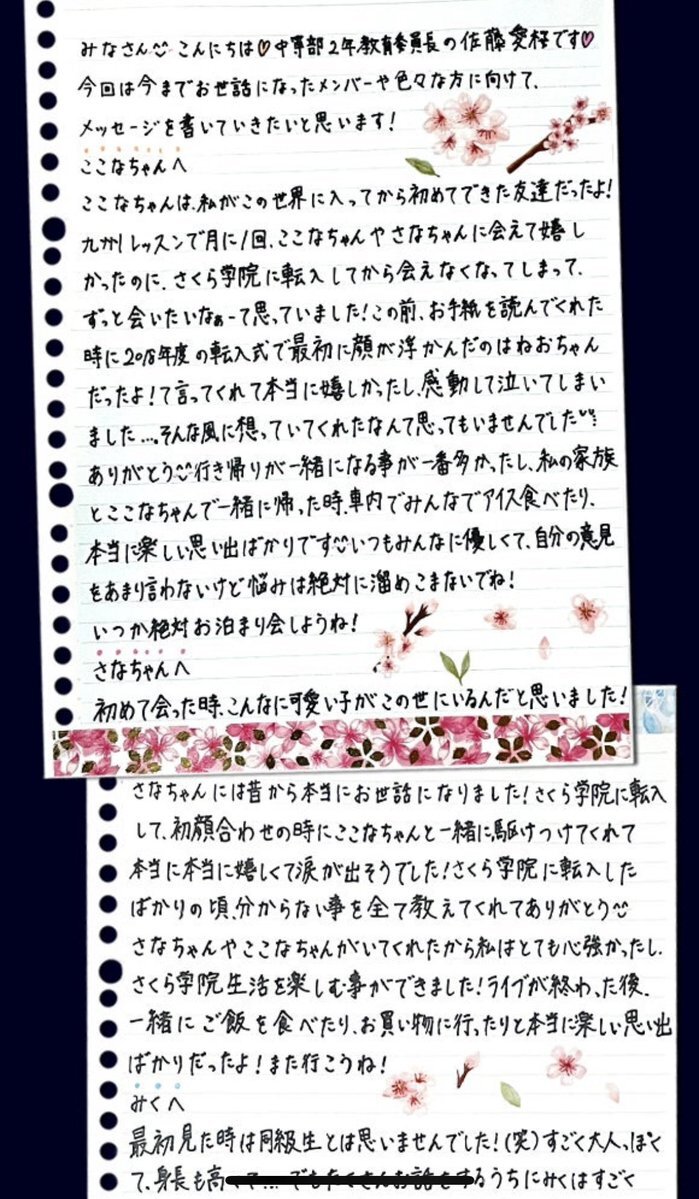 みなさんこんにちは♡中等部2年、教育委員長の佐藤愛桜です♡
今回は今までお世話になったメンバーや色々な方に向けて、
メッセージを書いていきたいと思います！
ここなちゃんへ
ここなちゃんは、私がこの世界に入ってから初めてできた友達だったよ！
九州レッスンで月に1回、ここなちゃんやさなちゃんに会えて嬉し
かったのに、さくら学院に転入してから会えなくなってしまって、
ずっと会いたいなぁーて思っていました！この前、お手紙を読んでくれた
時に2018年度の転入式で最初に顔が浮かんだのはねおちゃん
だったよ！て言ってくれて本当に嬉しかったし、感動して泣いてしまい
ました...。そんな風に想っていてくれたなんて思ってもいませんでした
ありがとう行き帰りが一緒になる事が一番多かったし、私の家族
とここなちゃんで一緒に帰った時、車内でみんなでアイス食べたり、
本当に楽しい思い出ばかりですいつもみんなに優しくて、自分の意見
をあまり言わないけど悩みは絶対に溜めこまないでね！
いつか絶対お泊まり会しようね！
さなちゃんへ
初めて会った時、こんなに可愛い子がこの世にいるんだと思いました！
さなちゃんには昔から本当にお世話になりました！さくら学院に転入
して、初顔合わせの時にここなちゃんと一緒に駆けつけてくれて
本当に本当に嬉しくて涙が出そうでした！さくら学院に転入した
ばかりの頃、分からない事を全て教えてくれてありがとう
さなちゃんやここなちゃんがいてくれたから私はとても心強かったし、
さくら学院生活を楽しむ事ができました！ライブが終わった後、
一緒にご飯を食べたり、お買い物に行ったりと本当に楽しい思い出
ばかりだったよ！また行こうね！
みくへ
最初見た時は同級生とは思いませんでした！(笑)すごく大人っぽく
て、身長も高くて...でもたくさんお話をするうちにみくはすごく